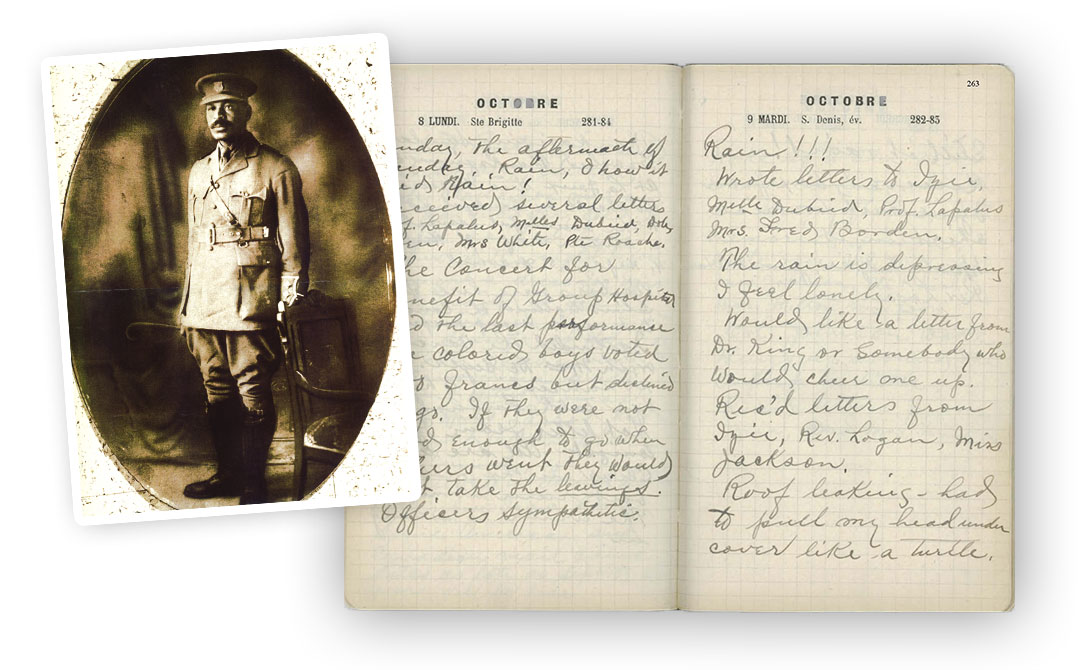 OCTOBRE
8 LUNDI. Ste Brigitte 281-84
nday, the aftermath of
unday. Rain, & how it
ed Rain!
ceived several letters
f. Lapalus, Melles Dubied,
en, Mrs White, Pte Roache.
he Concert for
nefit of Group Hospital
d the last performance
colored boys voted
francs but declined
go. If they were not
d enough to go when
hers went they would
t take the leavings.
Officers sympathetic.
263
OCTOBRE
9 MARDI. S. Denis, év. 282-83
Rain!!!
Wrote letters to
Melle Dubied, Prof. Lapalus
Mrs. Fred Borden.
The rain is depressing
I feel lonely.
Would like a letter from
Dr. King or Somebody who
would cheer one up.
Rec'd letters from
Rev. Logan, Miss
Jackson.
Roof leaking - had
to pull my head under
cover like a turtle.